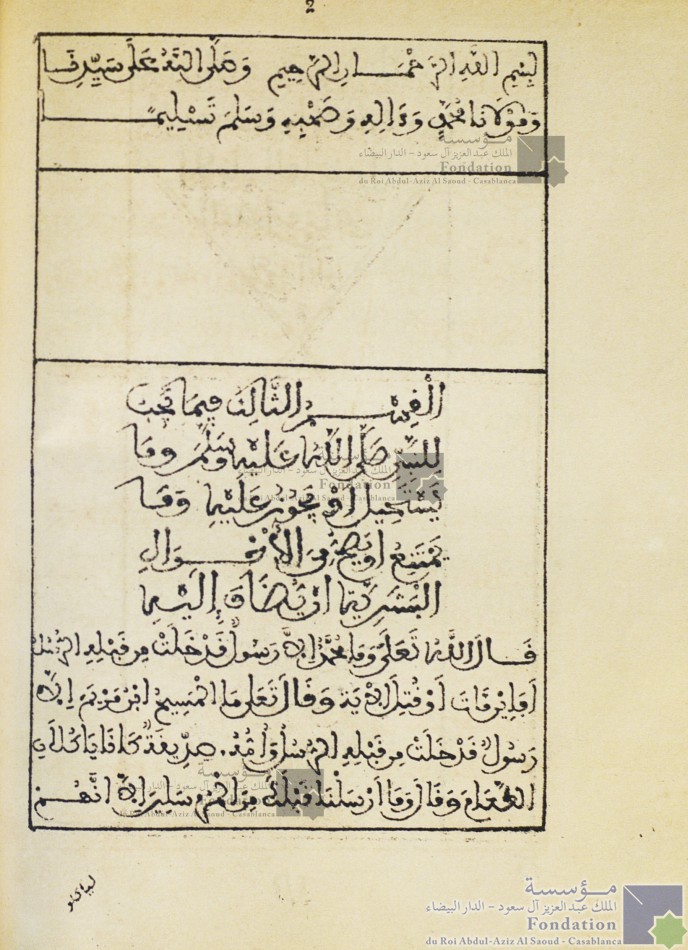 2
بسم الله الرحمان الرحيم وصلى الله على سيدنا
ومولانا محمد وءاله وصحبه وسلم تسليما
القسم الثالث فيما يجب
للنبي صلى الله عليه وسلم وما
يستحيل او يجوز عليه وما
يمتنع او يصح من الأحوال
البشرية ان يضاف إليه
قال الله تعلى وما محمد الا رسول قد خلت من قبله الرسل
افاين مات او قتل الاية وقال تعلى ما المسيح ابن مريم الا
رسول قد خلت من قبله الرسل وامه صديقة كانا ياكلان
الطعام وقال وما ارسلنا قبلك من المرسلين الا انهم
لياكلو
مؤسسة
الملك عبد العزيز آل سعود - الدار البيضاء
Fondation
du Roi Abdul-Aziz Al Saoud - Casablanca